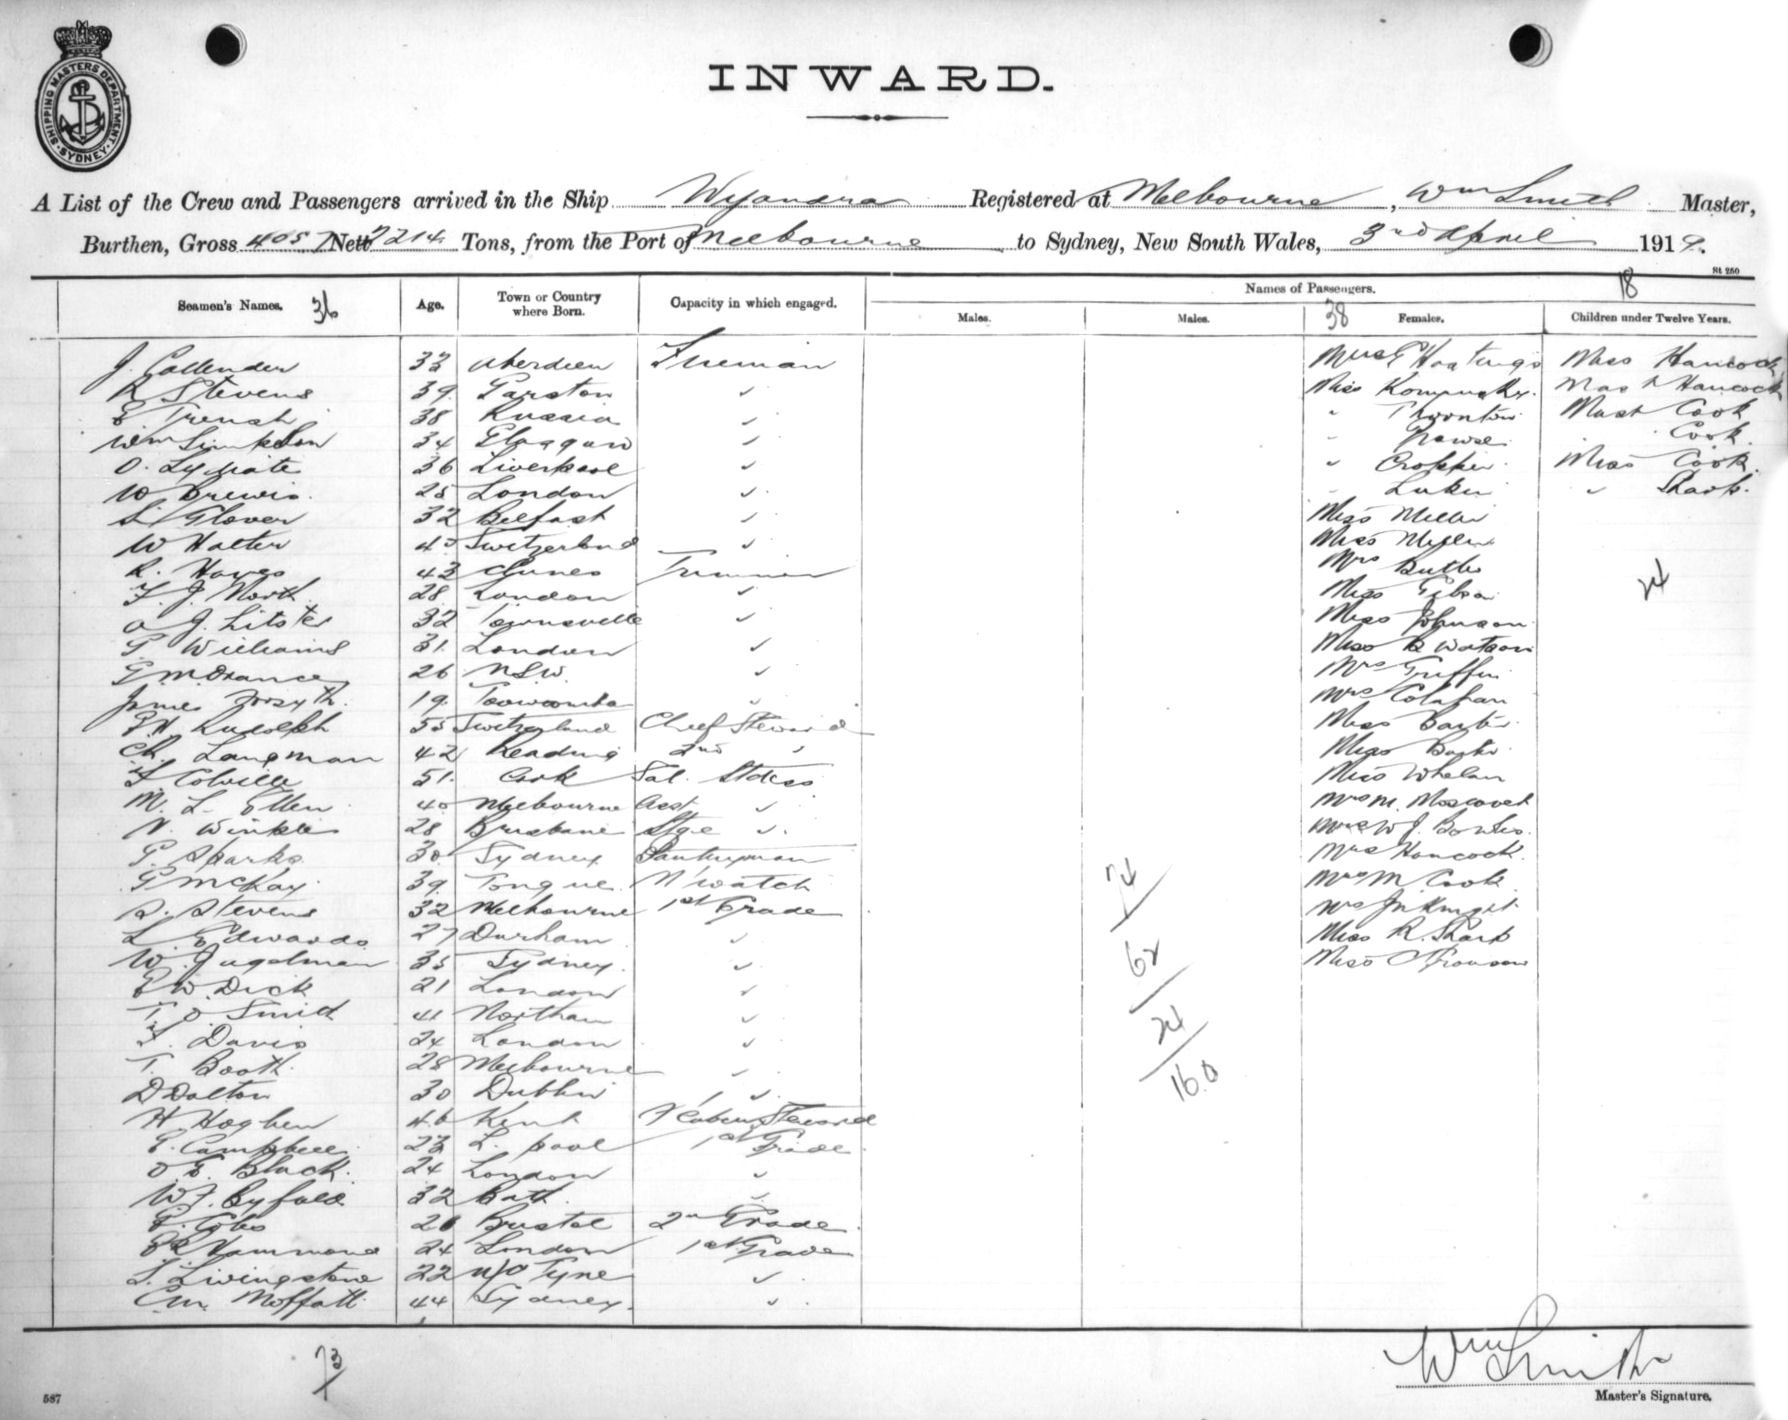 SHIPPING MASTERS DEPARTMENT
SYDNEY
INWARD.
A List of the Crew and Passengers arrived in the Ship Wyandra Registered at Melbourne, Wm Smith Master,
Burthen, Gross 4057 Nett 2214 Tons, from the Port of Melbourne to Sydney, New South Wales, 3rd April 1919.
St 250
Seamen's Names. 36 Age. Town or Country where Born. Capacity in which engaged. Names of Passengers. 18
Males. Males. 38 Females. Children under Twelve Years.
J. Callender 33 Aberdeen Fireman Mrs Hastings Miss Hancock
R Stevens 39 Garston " Miss Mast Hancock
38 Russia " " Thornton Mast Cook
Wm 34 Glasgow " " Cook.
O. 36 Liverpool " " Cropper Miss Cook.
W Brewis. 25 London " " " Sharp.
Glover 32 Belfast " Miss Miller
W Halter 40 Switzerland " Miss
R. Hayes 43 Clunes Trimmer Mrs Butler
F. J. North 28 London " Miss Gibson 24
A J. Litster 32 Townsville " Miss Johnson
G Williams 31 London " Miss Watson
G. 26 NSW. " Mrs Griffin
James Forsyth. 19 Toowoomba " Mrs
Rudolph 55 Switzerland Chief Steward Miss Baxter
Ch. Langman 42 Reading 2nd " Miss
F Colville 51 Cork Sal. Stdess Miss Whelan
M. L. Ellen 40 Melbourne Asst " Mrs M.
N. Winkle 28 Brisbane Stge " Mrs W J.
G. Sparks 30 Sydney Pantryman Mrs Hancock.
G McKay 39 Tongue N' watch Mrs M Cook 74
S. Stevens 32 Melbourne 1st Grade Mrs Knight
L Edwards 27 Durham " Miss R. Sharp
W. 35 Sydney. " Miss 62
E W. Dick 21 London "
T. O Smith 41 Northam " 24
F. Davis 24 London "
T. Booth 28 Melbourne " 160
D Dalton 30 Dublin "
H Hogben 46 Kent F Cabin Steward
E. Campbell 23 L. pool 1st Grade
O E. Black. 24 London "
W J. Byfield 32 Bath. "
26 Bristol 2nd Grade
Hammond 24 London 1st Grade
L. Livingstone 22 N/O Tyne "
Moffatt 44 Sydney. "
73
Wm Smith
Master's Signature.
587